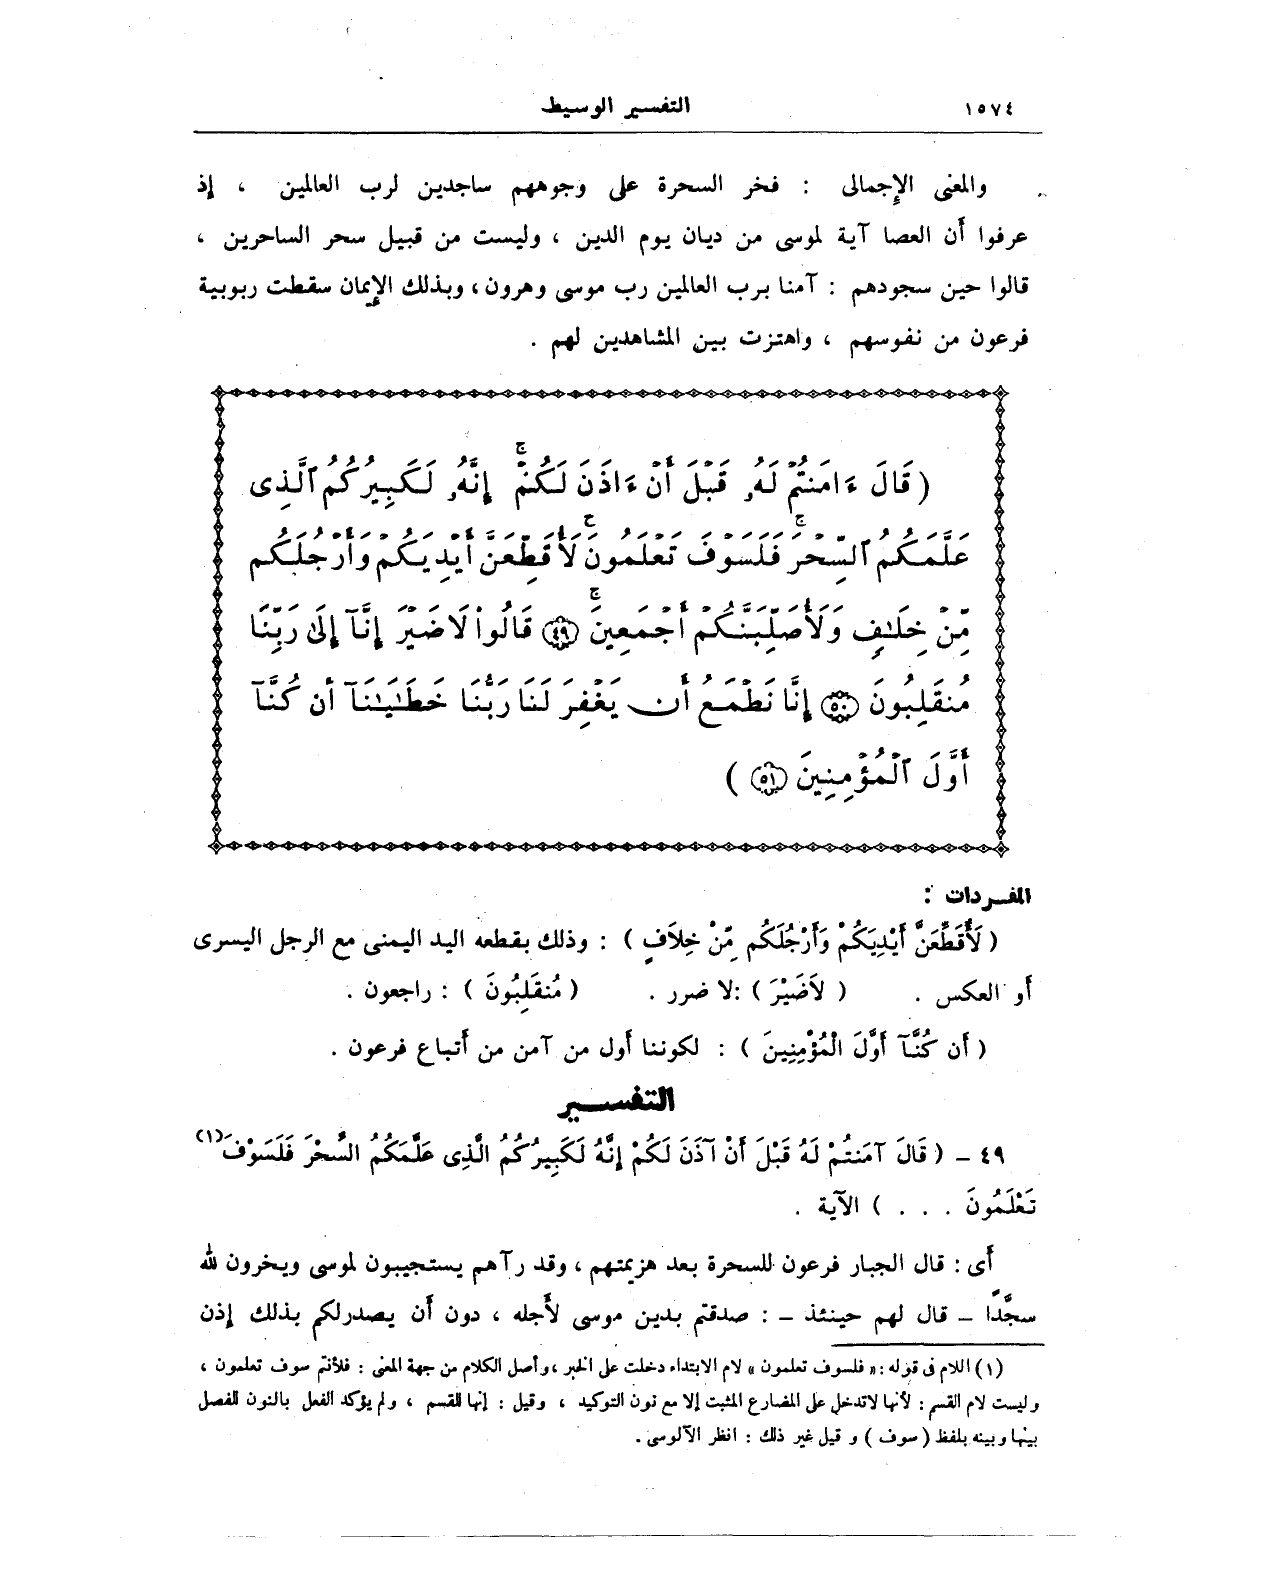 ١٥٧٤ التفسير الوسيط
والمعنى الإجمالى : فخر السحرة على وجوههم ساجدين لرب العالمين ، إذ
عرفوا أن العصا آية لموسى من ديان يوم الدين ، وليست من قبيل سحر الساحرين ،
قالوا حين سجودهم : آمنا برب العالمين رب موسى وهرون ، وبذلك الإيمان سقطت ربوبية
فرعون من نفوسهم ، واهتزت بين المشاهدين لهم .
( قَالَ ءَامَنتُمْ لَهُۥ قَبْلَ أَنْ ءَاذَنَ لَكُمْ ۖ إِنَّهُۥ لَكَبِيرُكُمُ ٱلَّذِى
عَلَّمَكُمُ ٱلسِّحْرَ فَلَسَوْفَ تَعْلَمُونَ ۚ لَأُقَطِّعَنَّ أَيْدِيَكُمْ وَأَرْجُلَكُم
مِّنْ خِلَـٰفٍ وَلَأُصَلِّبَنَّكُمْ أَجْمَعِينَ ۚ ﴿٤٩﴾ قَالُوا۟ لَا ضَيْرَ إِنَّآ إِلَىٰ رَبِّنَا
مُنقَلِبُونَ ﴿٥٠﴾ إِنَّا نَطْمَعُ أَن يَغْفِرَ لَنَا رَبُّنَا خَطَـٰيَـٰنَآ أَن كُنَّآ
أَوَّلَ ٱلْمُؤْمِنِينَ ﴿٥١﴾ )
المفردات :
( لَأُقَطِّعَنَّ أَيْدِيَكُمْ وَأَرْجُلَكُم مِّنْ خِلَافٍ ) : وذلك بقطعه اليد اليمنى مع الرجل اليسرى
أو العكس . ( لاَضَيْرَ ) : لا ضرر . ( مُنقَلِبُونَ ) : راجعون .
( أَن كُنَّآ أَوَّلَ الْمُؤْمِنِينَ ) : لكوننا أول من آمن من أتباع فرعون .
التفسير
٤٩ – ( قَالَ آمَنتُمْ لَهُ قَبْلَ أَنْ آذَنَ لَكُمْ إِنَّهُ لَكَبِيرُكُمُ الَّذِى عَلَّمَكُمُ السِّحْرَ فَلَسَوْفَ (١)
تَعْلَمُونَ . . . ) الآية .
أى : قال الجبار فرعون للسحرة بعد هزيمتهم ، وقد رآهم يستجيبون لموسى ويخرون لله
سجَّدًا – قال لهم حينئذ – : صدقتم بدين موسى لأجله ، دون أن يصدر لكم بذلك إذن
(١) اللام فى قوله : « فلسوف تعلمون » لام الابتداء دخلت على الخبر ، وأصل الكلام من جهة المعنى : فلأنتم سوف تعلمون ،
وليست لام القسم : لأنها لا تدخل على المضارع المثبت إلا مع نون التوكيد ، وقيل : إنها للقسم ، ولم يؤكد الفعل بالنون للفصل
بينها وبينه بلفظ ( سوف ) و قيل غير ذلك : انظر الآلوسى .